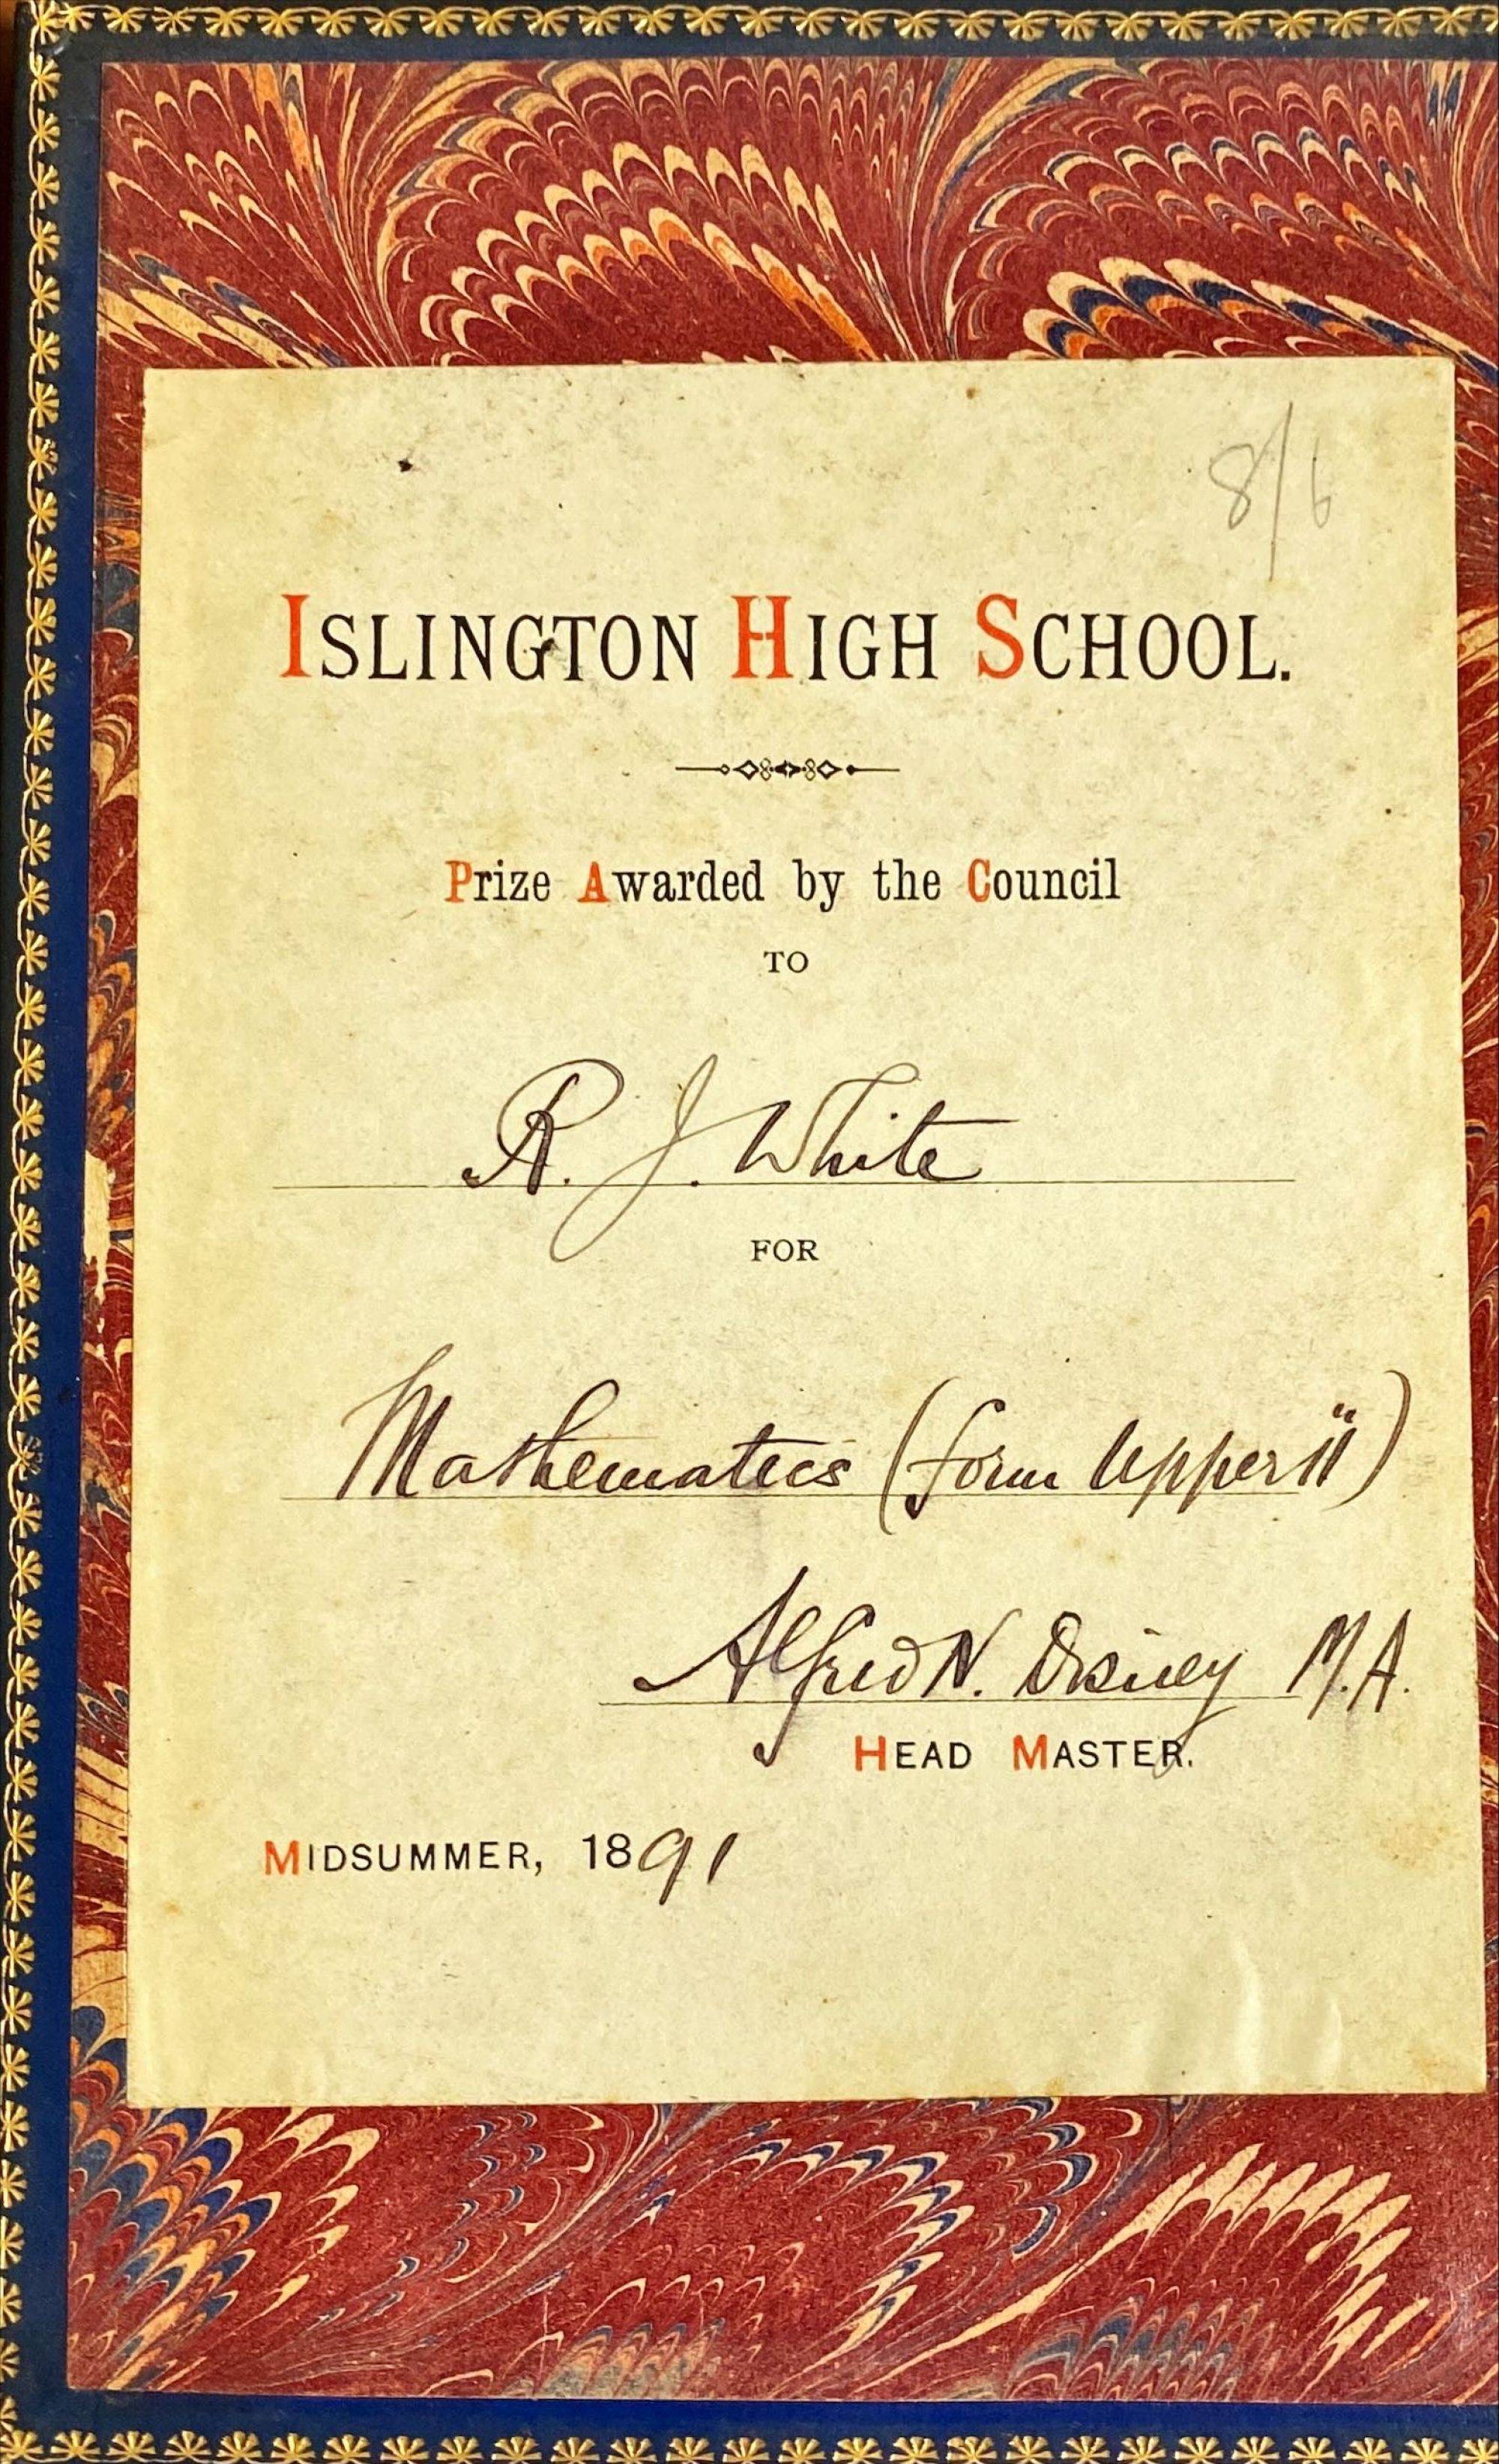 8/6
ISLINGTON HIGH SCHOOL.
Prize Awarded by the Council
TO
R. J. White
FOR
Mathematics (form Upper ii)
Alfred N. Disney M.A.
HEAD MASTER.
MIDSUMMER, 1891